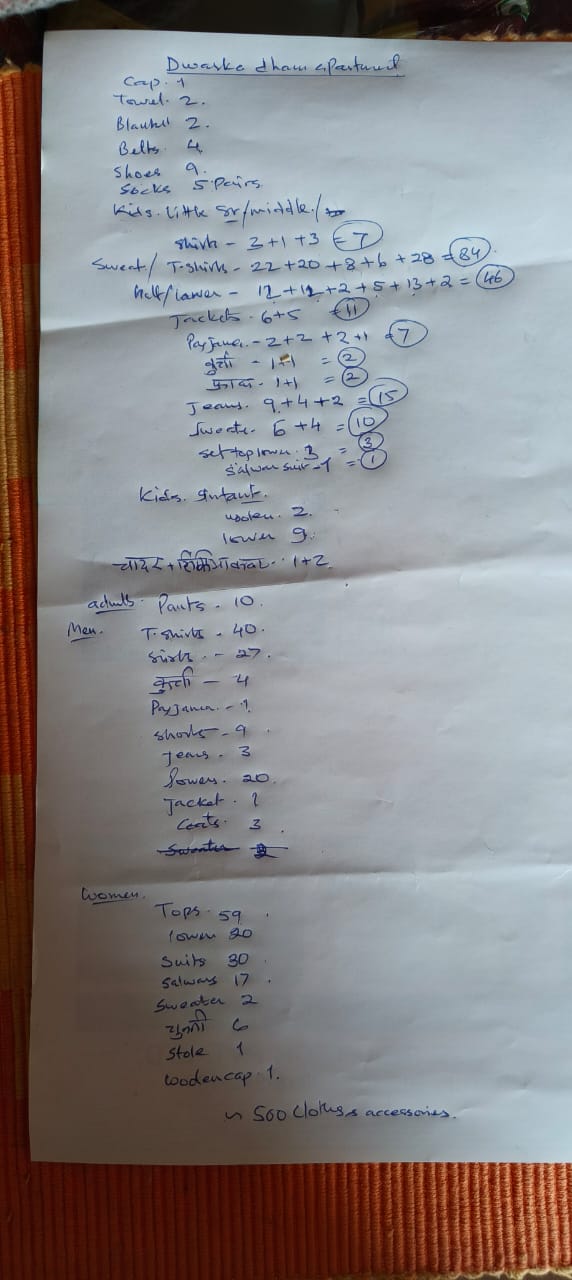 Dwarka dham apartment
Cap. 1
Towel. 2.
Blanket 2.
Belts. 4
Shoes 9.
Socks 5 pairs
Kids. little Sr/middle/
Shirts - 3+1+3 = 7
Sweat/ T-shirts - 22+20+8+6+28 = 84
half/lower - 12+12+2+5+13+2 = 46
Jackets. 6+5 = 11
Payjama. - 2+2+2+1 = 7
कुर्ती - 1+1 = 2
फ्राक - 1+1 = 2
Jeans. 9+4+2 = 15
Sweate. 6+4 = 10
set top lower. 3 = 3
Salwar suit - 1 = 1
Kids. Infant.
woolen. 2.
lower 9.
चादर + 1+2.
adults. Pants - 10.
Men. T-shirts - 40.
Shirts. - 27.
कुर्ता - 4
Payjama. - 1.
Shorts - 9.
Jeans. 3
lowers. 20.
Jacket. 1
Coats. 3.
Sweater
Women.
Tops. 59.
lower 20
Suits 30
Salwars 17.
Sweater 2
चुन्नी 6
Stole 1
Woolen cap. 1.
~ 500 Clothes & accessories.